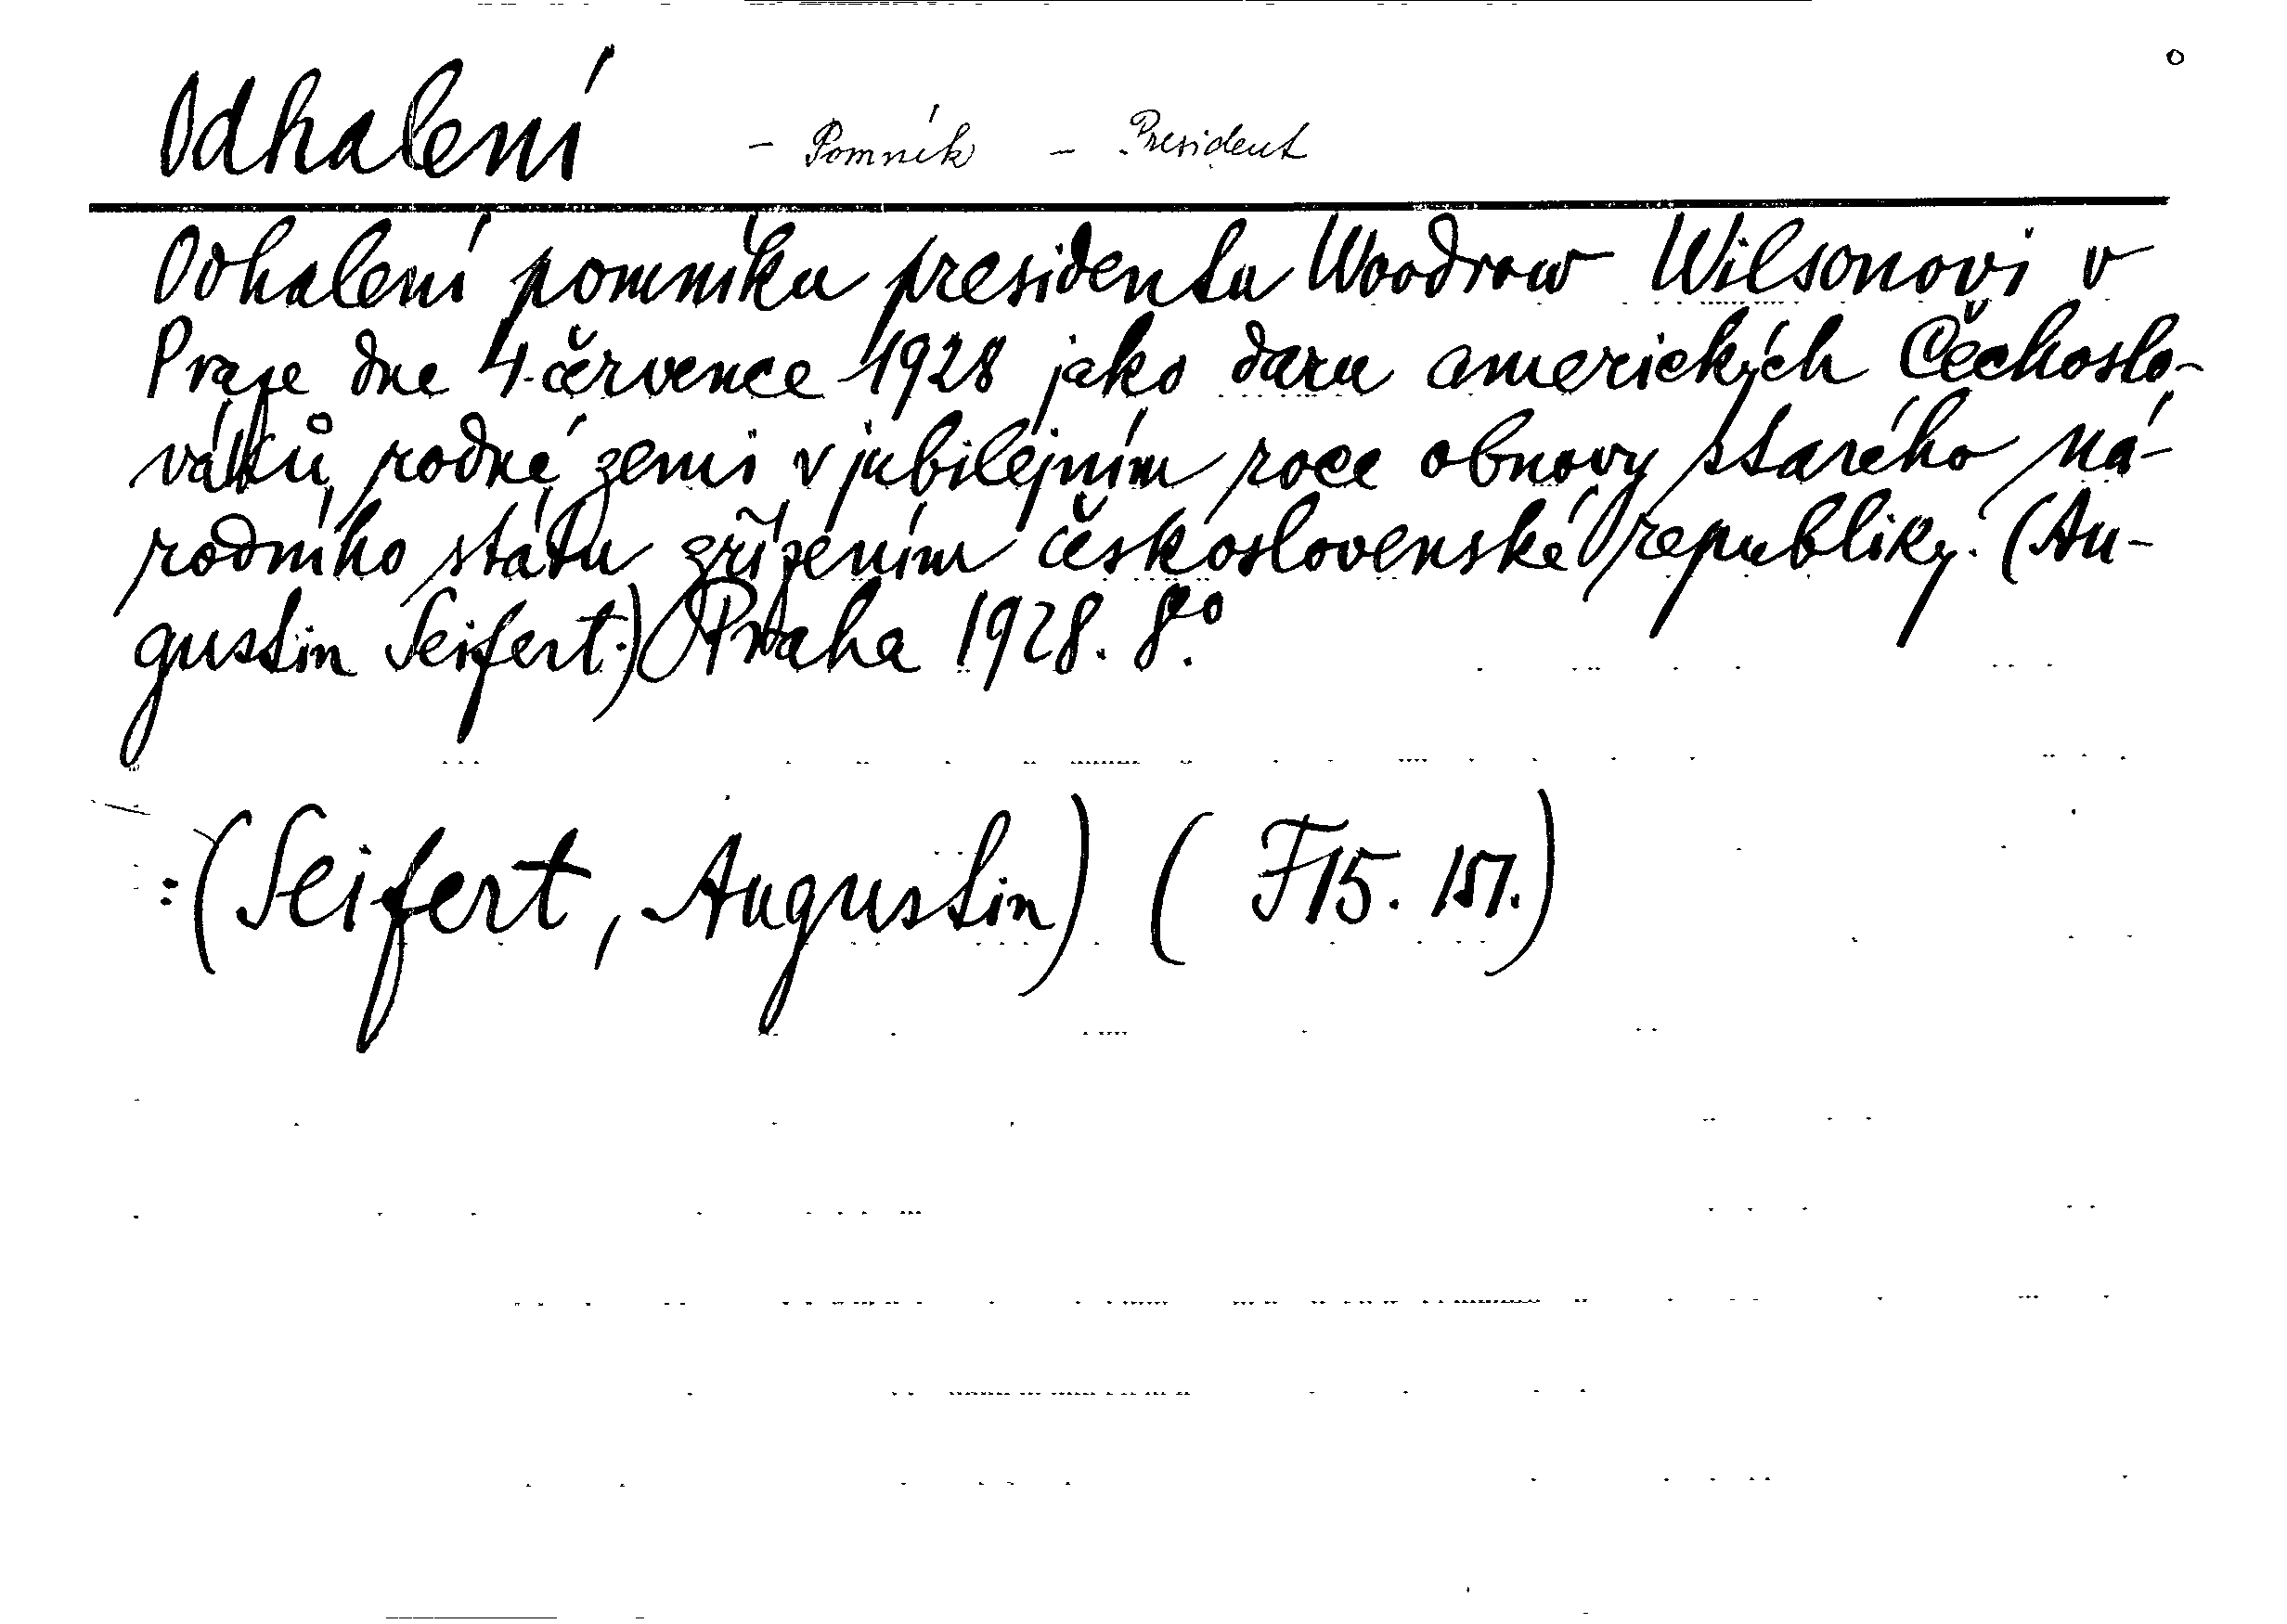 Odhalení - Pomník - President
Odhalení pomníku presidentu Woodrow Wilsonovi v
Praze dne 4. července 1928 jako daru amerických Čechoslo-
váků rodné zemi v jubilejním roce obnovy starého ná-
rodního státu zřízením československé republiky. (Au-
gustin Seifert.) Praha 1928. 8o.
:(Seifert, Augustin) ( F15. 151.)